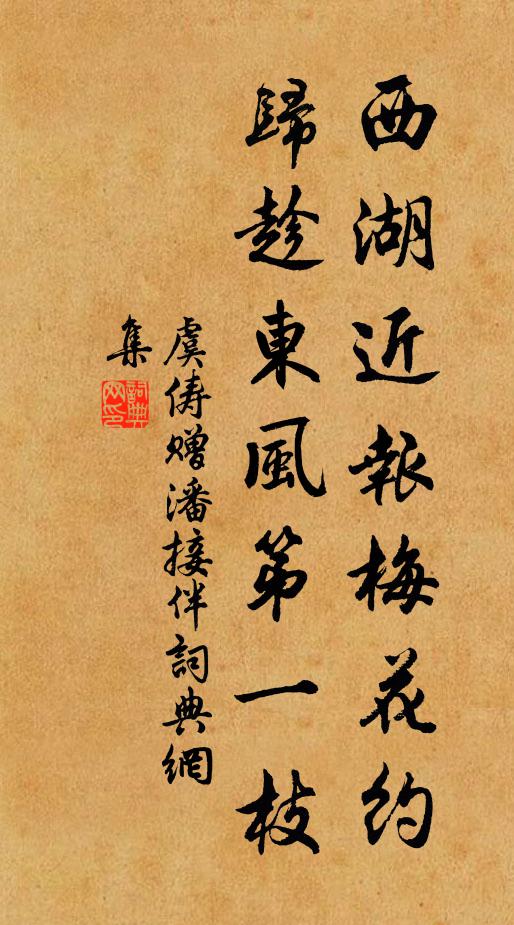 西湖近報梅花約
歸趁東風第一枝
虞儔贈潘接伴詞典網
集
詞典
网印